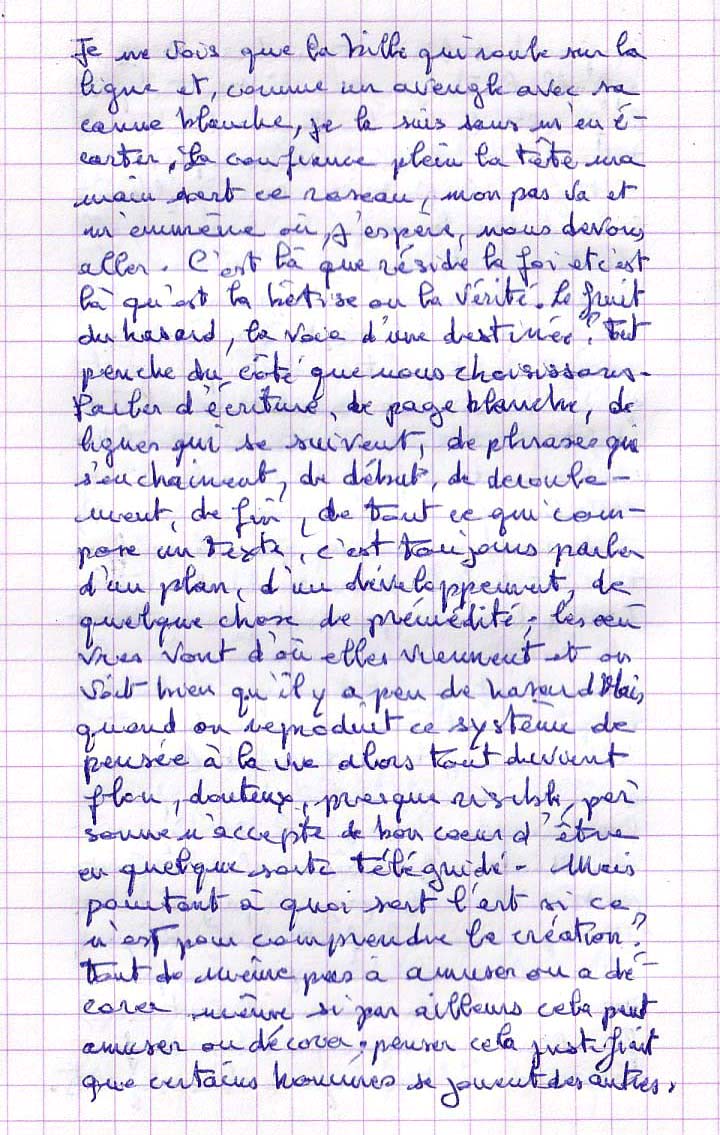 Je ne vois que la bille qui roule sur la
ligne et, comme un aveugle avec sa
canne blanche, je la suis sans m'en é-
carter, la confiance plein la tête ma
main sert ce roseau, mon pas va et
m'emmène où, j'espère, nous devons
aller. C'est là que réside la foi et c'est
là qu'est la bêtise ou la vérité. Le fruit
du hasard, la voie d'une destinée? Tout
penche du côté que nous choisissons.
Parler d'écriture, de page blanche, de
lignes qui se suivent, de phrases qui
s'enchainent, de début, de déroule-
ment, de fin, de tout ce qui com-
pose un texte, c'est toujours parler
d'un plan, d'un développement, de
quelque chose de prémédité; les œu
vres vont d'où elles viennent et on
voit bien qu'il y a peu de hasard. Mais,
quand on reproduit ce système de
pensée à la vie alors tout devient
flou, douteux, presque risible, per
sonne n'accepte de bon coeur d'être
en quelque sorte téléguidé. Mais
pourtant à quoi sert l'art si ce
n'est pour comprendre la création?
Tout de même pas à amuser ou a dé-
corer même si par ailleurs cela peut
amuser ou décorer; penser cela justifirait
que certains hommes se jouent des autres.